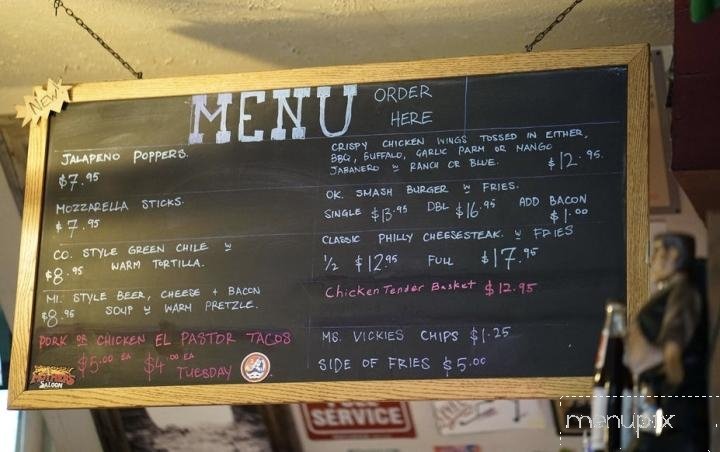 NEW!
MENU
ORDER
HERE
JALAPENO POPPERS.
$7.95
MOZZARELLA STICKS.
$7.95
CO. STYLE GREEN CHILE w
$8.95 WARM TORTILLA.
MI. STYLE BEER, CHEESE + BACON
$8.95 SOUP w WARM PRETZLE.
PORK OR CHICKEN EL PASTOR TACOS
$5.00 EA $4.00 EA TUESDAY
MOTHER'S
SALOON
CRISPY CHICKEN WINGS TOSSED IN EITHER,
BBQ, BUFFALO, GARLIC PARM OR MANGO
JABANERO w RANCH OR BLUE. $12.95.
OK. SMASH BURGER w FRIES.
SINGLE $13.95 DBL $16.95 ADD BACON
$1.00
CLASSIC PHILLY CHEESESTEAK. w FRIES
1/2 $12.95 FULL $17.95
Chicken Tender Basket $12.95
MS. VICKIES CHIPS $1.25
SIDE OF FRIES $5.00
FULL
SERVICE
menupix